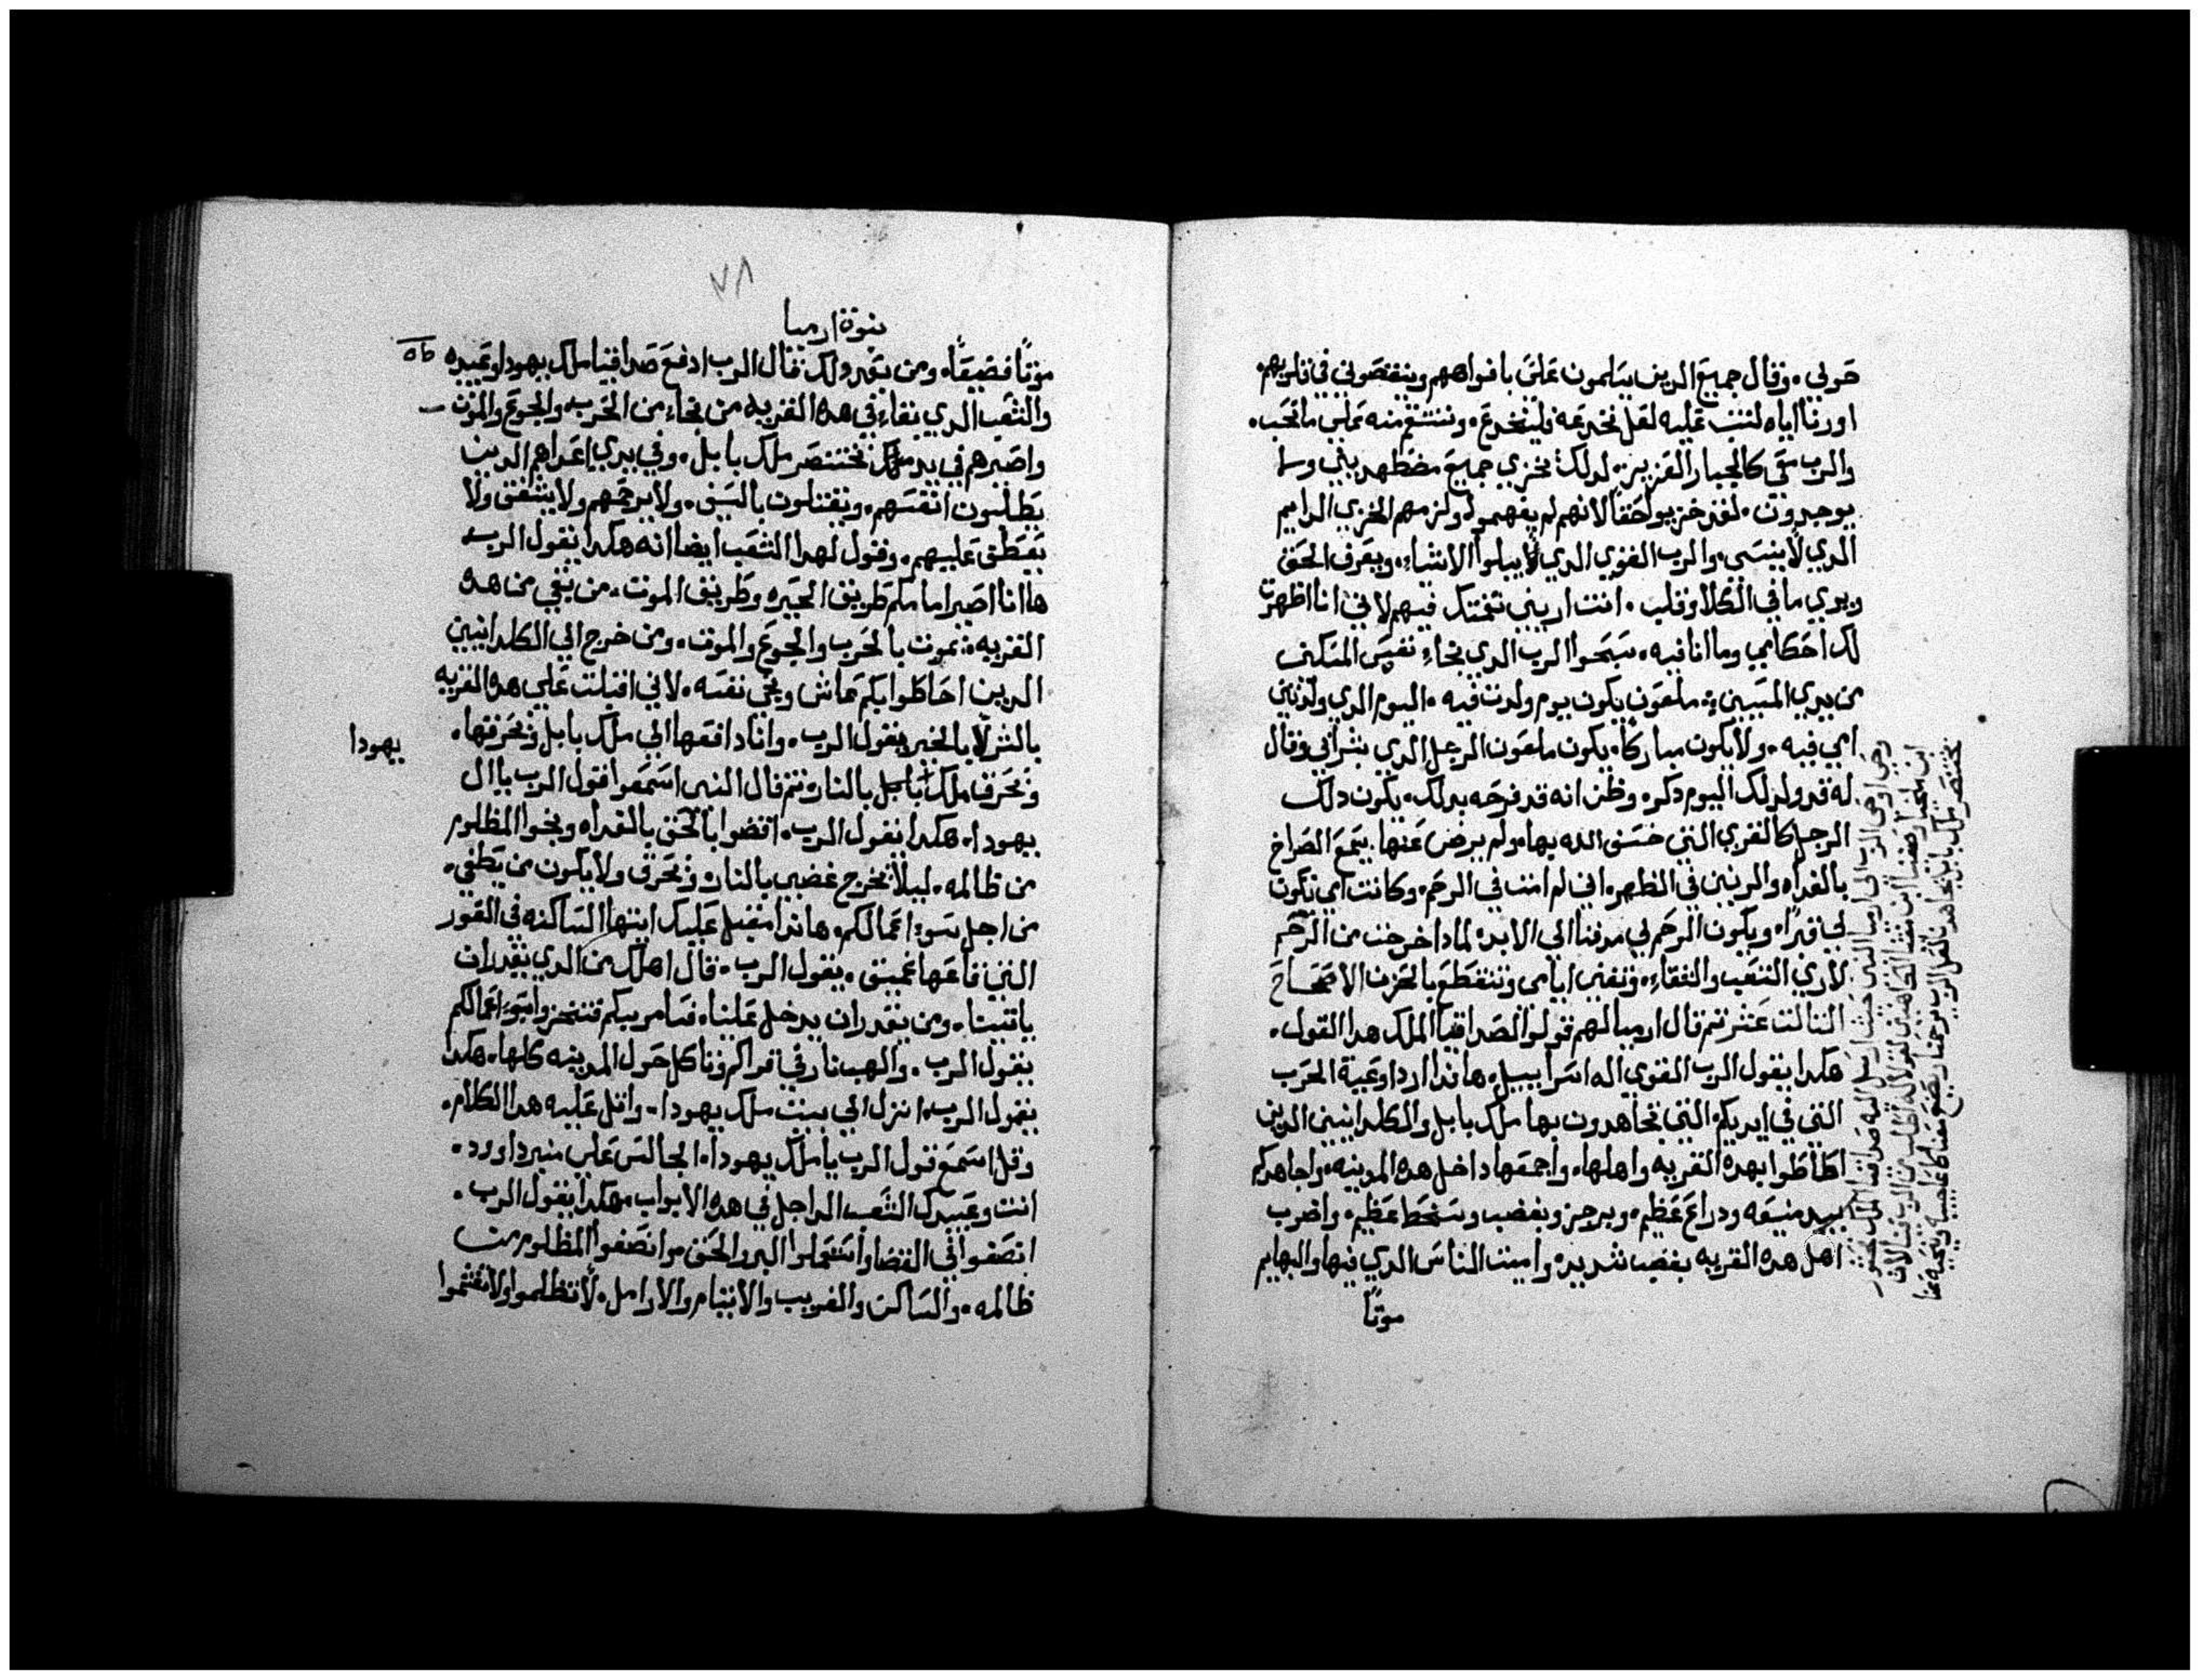 حولي. وقال جميع الدين يسلمون علىّ بافواههم وينقصوني في قلوبهم.
اورنا اياه لنتب عليه لعل نخدعه فلينخدع. وننتقم منه على ما نحب.
والرب معي كالجبار العزيز. لدلك نخزي جميع مضطهديني وما
يوجدون. لقد خزيوا حقاً لانهم لم يفهموا. ولزمهم الخزي الدايم
الدي لا ينسى. والرب القوي الدي لا يبلوا الاشياء. ويعرف الحق
ويري ما في الكلا وقلب. انت اريني نقمتك فيهم لاني انا اظهرت
لك احكامي وما انا فيه. سبحوا الرب الدي نجاء نفس المسكين
من يدي المسيين. ملعون يكون يوم ولدت فيه. اليوم الدي ولدتني
امي فيه. ولا يكون مباركاً. يكون ملعون الرجل الدي بشر ابي وقال
له قد ولد لك اليوم دكر. وظن انه قد فرحه بدلك. يكون دلك
الرجل كالقري التي خسف الله بها. ولم يرض عنها. يسمع الصراخ
بالغداه والرنين في الظهر. اني لم امت في الرحم. وكانت امي تكون
لي قبراً. ويكون الرحم لي مدفنا الي الابد. لمادا خرجت من الرحم
لاري التعب والشقاء. وتفني ايامي وتنقطع بالحزن الاصحاح
التالت عشر تم قال ارميا لهم قولوا لصداقيا الملك هدا القول.
هكدا يقول الرب القوي اله اسراييل. هاندا ارد اوعية الحرب
التي في ايديكم التي تجاهدون بها ملك بابل والكلدانيين الدين
احاطوا بهده القريه واهلها. واجمعها داخل هده المدينه. واجاهدكم
بيد منيعه ودراع عظيم. وبرجز وبغضب وسخط عظيم. واضرب
اهل هده القريه بغضب شديد. واميت الناس الدي فيها والبهايم
موتاً
وحي اوحي الرب الي ارميا النبي حيت ارسل اليه صداقيا الملك فشحور
ابن ملخيا وصفنيا ابن معشا الكاهن ليقولا له اطلب من الرب فينا لان
بختنصر ملك بابل يجاهدنا لعل الرب يرحمنا ويصنع معنا كاعاجيبه وينحيه عنا
٧٨
نبوة ارميا
موتاً فضيعاً. ومن بعد دلك قال الرب ادفع صداقيا ملك يهودا وعبيده
والشعب الدي بقاء في هده القريه من نجاء من الحرب والجوع والموت
واصيرهم في يد بختنصر ملك بابل. وفي يدي اعداهم الدين
يطلبون انفسهم. ويقتلون بالسيف. ولا يرحمهم ولا يشفق ولا
يعطف عليهم. وقول لهدا الشعب ايضا انه هكدا يقول الرب
هاانا اصير امامكم طريق الحيره وطريق الموت. من بقي من هده
القريه يموت بالحرب والجوع والموت. ومن خرج الي الكلدانيين
الدين احاطوا بكم عاش ونجى نفسه. لاني اقبلت على هده القريه
بالشر لا بالخير يقول الرب. وانا دافعها الي ملك بابل وتحرقها.
يهودا
وتحرق ملك بابل بالنار. تم قال النبي اسمعوا قول الرب يا ال
يهودا. هكدا يقول الرب. اقضوا بالحق بالغداه ونجوا المظلوم
من ظالمه. ليلا تخرج غضبي بالنار وتحرق ولا يكون من يطفي.
من اجل سوء اعمالكم. هاندا مقبل عليك ايتها الساكنه في الغور
التي قاعها عميق. يقول الرب. قال اهلك من الدي يقدر ان
ياتينا. ومن يقدر ان يدخل علينا. فسامر بكم
يقول الرب. والهب نار في قراكم وتاكل حول المدينه كلها. هكدا
يقول الرب. انزل الي بيت ملك يهودا. واتل عليه هدا الكلام.
وقل اسمع قول الرب يا ملك يهودا. الجالس على منبر داوود.
انت وعبيدك الشعب الداخل في هده الابواب. هكدا يقول الرب.
انصفوا في القضا واستعملوا البر والحق. وانصفوا المظلوم من
ظالمه. والساكن والغريب والايتام والارامل. لا تظلموا ولا تغشموا